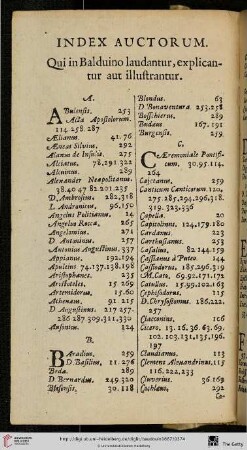 INDEX AUCTORUM.
Qui in Balduino laudantur, explican-
tur aut illustrantur.
A.
Abulensis, 253
Acta Apostolorum.
114. 258. 287
Ælianus. 41. 76
Æneas Silvius, 292
Alanus de Insulis, 275
Alciatus, 78. 291. 322
Alcuinus, 289
Alexander Neopolitanus,
38. 40 47 82. 201. 235
D. Ambrosius, 282. 318
L. Andronicus, 96. 150
Angelus Politianus, 14
Angelus Rocca, 265
Angelomus, 271
D. Antoninus, 257
Antonius Augustinus, 337
Appianus, 192. 194
Apuleius 74. 137. 138. 198
Aristophanes, 235
Aristoteles, 15 269
Artemidorus, 15. 60
Athenæus, 91 215
D Augustinus, 217 257.
286 287. 309. 311. 330
Ausonius, 124
B.
Baradius, 259
D. Basilius, 11 276
Beda. 289
D Bernardus, 249. 320
Blesensis, 30. 118
Blondus. 63
D. Bonaventura, 253. 258
Bosschierus, 289
Budæus 167. 191
Burgensis 259
C.
Cæremoniale Pontifi-
cum. 30. 95. 114.
264
Cajetanus, 259
Canticum Canticorum. 110,
275. 285. 294. 296. 318.
319. 323. 336
Capella. 20
Capitolinus, 124. 179. 180
Cardanus, 223
Carthusianus. 253
Casalius, 82 144. 159
Cassianus à Puteo. 144
Cassiodorus, 185. 296. 319
M. Cato, 69. 92. 171. 322
Catullus, 15. 99. 102. 163
Cephisodorus, 115
D. Chrysostomus. 186. 222.
257
Ciacconius, 106
Cicero, 13. 16. 36. 63. 69.
102. 103. 131. 135. 196.
197
Claudianus. 113
Clemens Alexandrinus. 115
116. 222. 233
Cluverius, 36. 169
Cochlæus, 292
Co-
http://digi.ub.uni-heidelberg.de/diglit/
© Universitätsbibliothek Heidelberg
The Getty